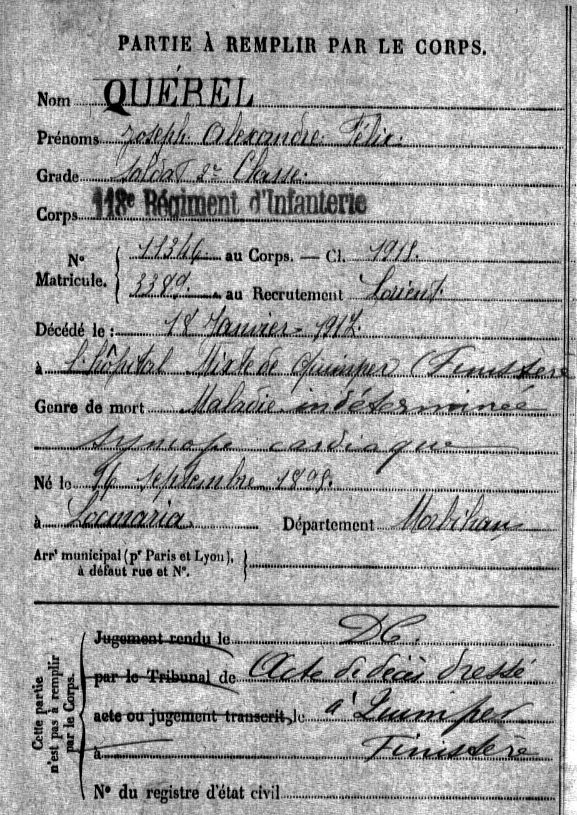 PARTIE À REMPLIR PAR LE CORPS.
Nom QUÉREL
Prénoms Joseph Alexandre Félix.
Grade Soldat 2e Classe.
Corps 118e Régiment d'Infanterie
N° Matricule. 11346 au Corps. — Cl. 1918.
3389. au Recrutement Lorient
Décédé le : 18 Janvier 1917.
à l'hôpital Mixte de Quimper (Finistère
Genre de mort Maladie indéterminée
Syncope cardiaque
Né le septembre 1898.
à Locmaria. Département Morbihan
Arrt municipal (pr Paris et Lyon), à défaut rue et N°.
Cette partie n'est pas à remplir par le Corps.
Jugement rendu le DC.
par le Tribunal de Acte de décès dressé
acte ou jugement transcrit, le à Quimper
à Finistère
N° du registre d'état civil